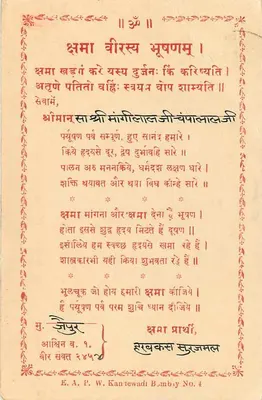 ॥ ॐ ॥
क्षमा वीरस्य भूषणम् ।
क्षमा खड्गं करे यस्य दुर्जनः किं करिष्यति ।
अतृणे पतितो वह्निः स्वयमे वोप शाम्यति ॥
सेवामें,
श्रीमान् सा श्री मांगीलालजी चंपालालजी
पर्यूषण पर्व सम्पूर्ण, हुए सानंद हमारे ।
किये हृदयसे दूर, द्वेष दुर्भावहि सारे ॥
पालन अरु मननकिये, धर्मदश लक्षण धारे ।
शक्ति यथाबत और यथा विध कीन्हे सारे ॥
क्षमा मांगना और क्षमा देना है भूषण ।
होता इससे शुद्ध हृदय मिटते हैं दूषण ।
इसीलिये हम स्वच्छ हृदयसे खमा रहे हैं ।
शास्त्रकारभी यही क्रिया शुभवता रहे हैं ॥
भूलचूक जो होय हमारी क्षमा कीजिये ।
हैं पर्यूषण पर्व परम शुचि ध्यान दीजिये ॥
मु. जैपुर
क्षमा प्रार्थी,
आश्विन व. १
वीर संवत २४५
हरबकस सुरजमल
K. A. P. W. Kantewadi Bombay No. 4